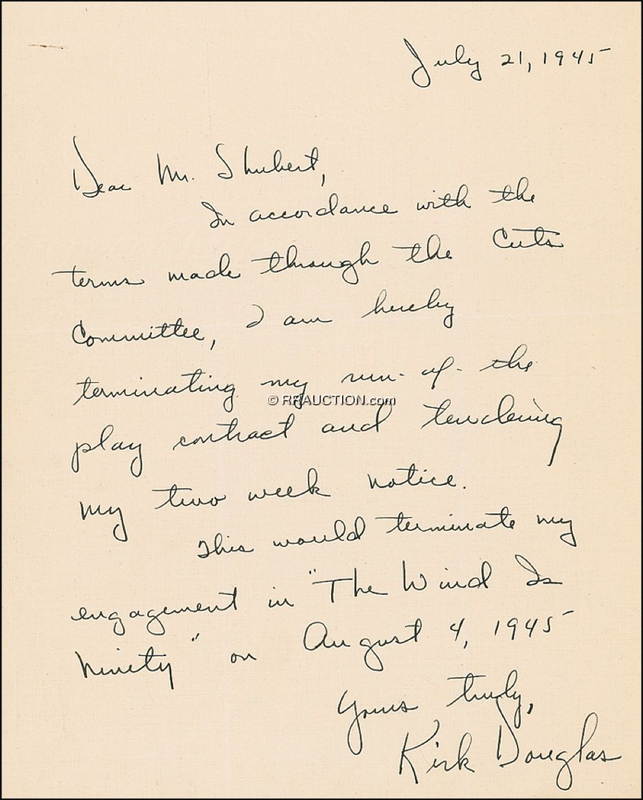 July 21, 1945
Dear Mr. Shubert,
In accordance with the
terms made through the Cuts
Committee, I am hereby
terminating my run-of-the
© RRAUCTION.com
play contract and tendering
my two week notice.
This would terminate my
engagement in "The Wind Is
Ninety" on August 4, 1945
Yours truly,
Kirk Douglas